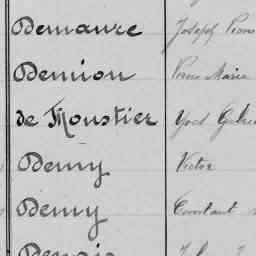 Demaure Joseph Pierre
Demion Pierre Marie
de Moustier
Demy Victor
Demy Constant